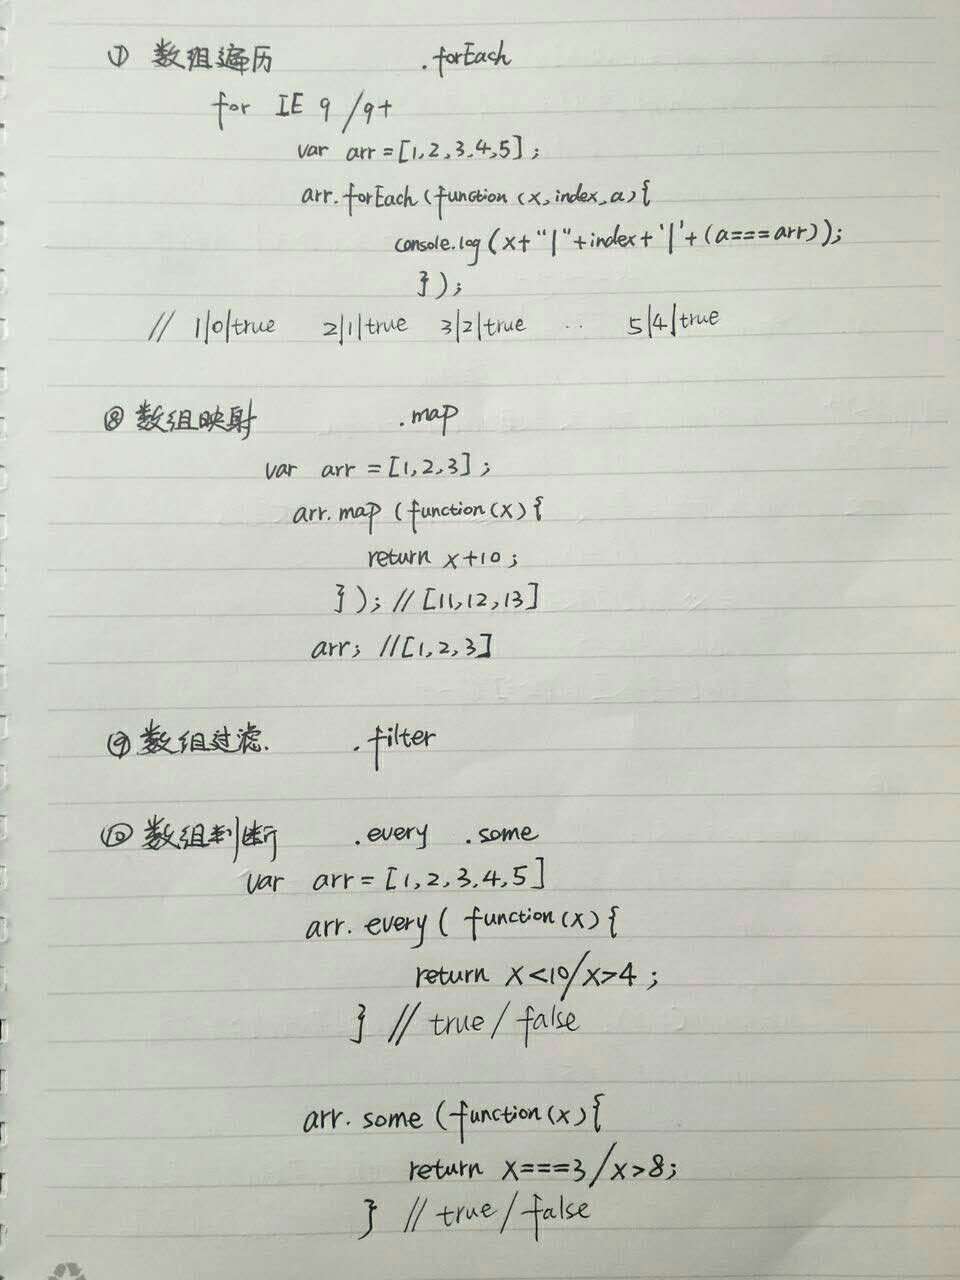 ⑦ 数组遍历 .forEach
for IE 9/9+
var arr=[1,2,3,4,5];
arr.forEach(function(x,index,a){
console.log(x+"|"+index+'|'+(a===arr));
});
// 1|0|true 2|1|true 3|2|true .. 5|4|true
⑧ 数组映射 .map
var arr=[1,2,3];
arr.map(function(x){
return x+10;
}); //[11,12,13]
arr; //[1,2,3]
⑨ 数组过滤. .filter
⑩ 数组判断 .every .some
var arr=[1,2,3,4,5]
arr.every( function(x){
return x<10/x>4;
} // true/false
arr.some(function(x){
return x===3/x>8;
} // true/false